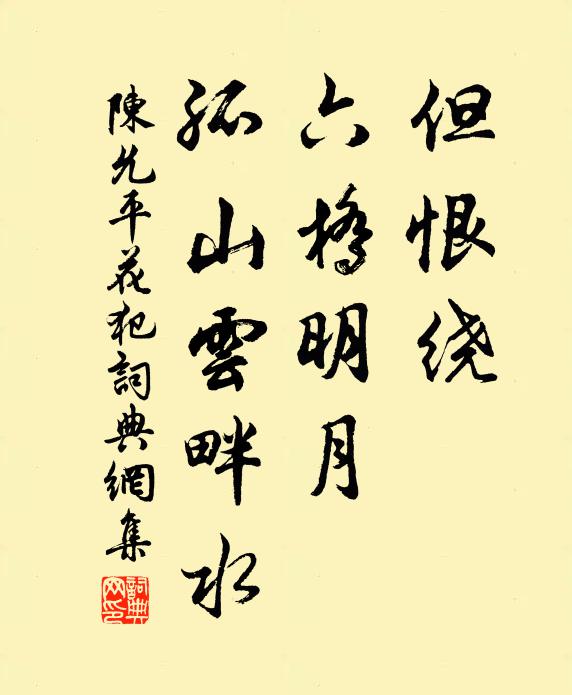 但恨绕
六橋明月
孤山雲畔水
陳允平花犯詞典網集
詞典网印